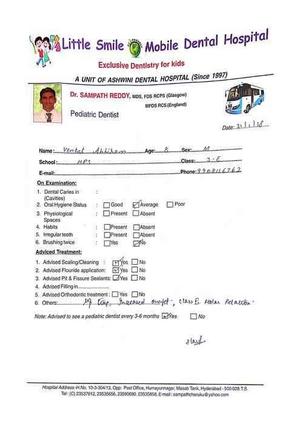 Little Smile Mobile Dental Hospital
Exclusive Dentistry for kids
A UNIT OF ASHWINI DENTAL HOSPITAL (Since 1997)
Dr. SAMPATH REDDY, MDS, FDS RCPS (Glasgow)
MFDS RCS (England)
Pediatric Dentist
Date:
Name: Age: 8 Sex: M
School: HPS Class: 3-E
E-mail: Phone:
On Examination:
1. Dental Caries in :
(Cavities)
2. Oral Hygiene Status : Good Average Poor
3. Physiological : Present Absent
Spaces
4. Habits : Present Absent
5. Irregular teeth : Present Absent
6. Brushing twice : Yes No
Adviced Treatment:
1. Advised Scaling/Cleaning : Yes No
2. Advised Flouride application: Yes No
3. Advised Pit & Fissure Sealants: Yes No
4. Advised Filling in
5. Advised Orthodontic treatment : Yes No
6. Others: Increased overjet, Class II Molar Relation
Note: Advised to see a pediatric dentist every 3-6 months Yes No
Hospital Address: H.No. 10-3-304/13, Opp. Post Office, Humayunnagar, Masab Tank, Hyderabad - 500 028 T.S.